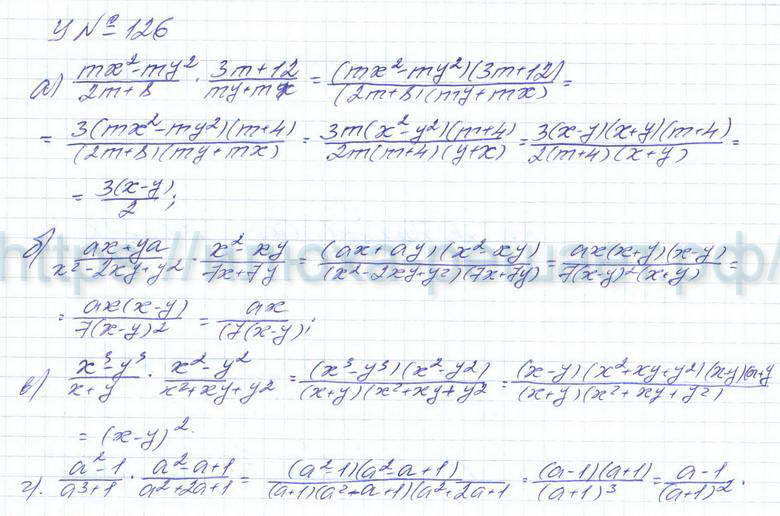 У № 126
а) (mx²-my²)/(2m+8) · (3m+12)/(my+mx) = ((mx²-my²)(3m+12))/((2m+8)(my+mx)) =
= (3(mx²-my²)(m+4))/((2m+8)(my+mx)) = (3m(x²-y²)(m+4))/(2m(m+4)(y+x)) = (3(x-y)(x+y)(m+4))/(2(m+4)(x+y)) =
= (3(x-y))/2;
б) (ax+ya)/(x²-2xy+y²) · (x²-xy)/(7x+7y) = ((ax+ay)(x²-xy))/((x²-2xy+y²)(7x+7y)) = (ax(x+y)(x-y))/(7(x-y)²(x+y)) =
= (ax(x-y))/(7(x-y)2) = (ax)/((7(x-y));
в) (x³-y³)/(x+y) · (x²-y²)/(x²+xy+y2) = ((x³-y³)(x²-y2))/((x+y)(x²+xy+y2) = ((x-y)(x²+xy+y²)(x-y)(x+y)/((x+y)(x²+xy+y²))
= (x-y)².
г). (a²-1)/(a³+1) · (a²-a+1)/(a²+2a+1) = ((a²-1)(a²-a+1))/((a+1)(a²-a+1)(a²+2a+1) = ((a-1)(a+1))/((a+1)³) = (a-1)/((a+1)²).